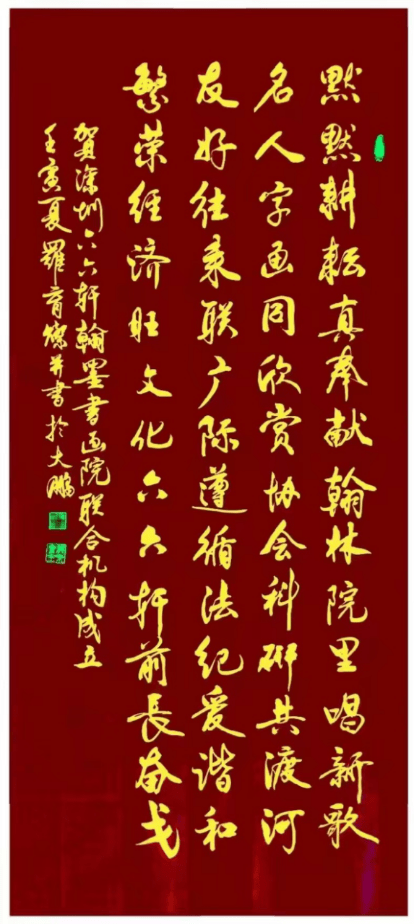 默默耕耘真奉献翰林院里唱新歌
名人字画同欣赏协会科研共渡河
友好往来联广际遵循法纪爱谐和
繁荣经济旺文化六六轩前長奋戈
贺深圳六六轩翰墨书画院联合机构成立
壬寅夏羅育燦并書於大鵬